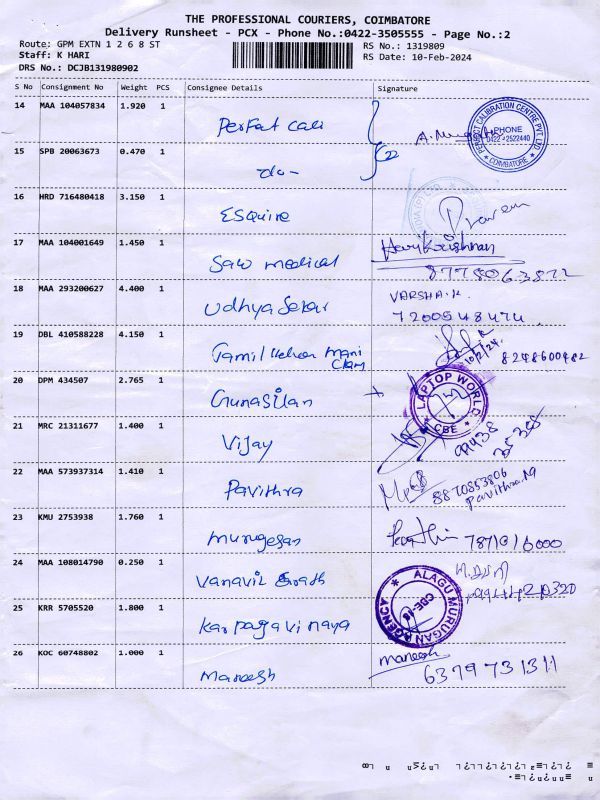 THE PROFESSIONAL COURIERS, COIMBATORE
Delivery Runsheet - PCX - Phone No.:0422-3505555 - Page No.:2
Route: GPM EXTN 1 2 6 8 ST RS No.: 1319809
Staff: K HARI RS Date: 10-Feb-2024
DRS No.: DCJB131980902
S No Consignment No Weight PCS Consignee Details Signature
14 MAA 104057834 1.920 1 Perfect Cali
PERFECT CALIBRATION CENTRE PVT. LTD PHONE 0422-2522440 COIMBATORE
15 SPB 20063673 0.470 1 do-
16 HRD 716480418 3.150 1 ESquire Praveen
17 MAA 104001649 1.450 1 Sai medical HariKrishnan
18 MAA 293200627 4.400 1 Udhya Sekar VARSHA.K
7200548474
19 DBL 410588228 4.150 1 mani 10/2/24 8248600482
20 DPM 434507 2.765 1 Gunasilan LAPTOP WORLD CBE
21 MRC 21311677 1.400 1 Vijay
22 MAA 573937314 1.410 1 Pavithra 8870853806
Pavithra.N
23 KMU 2753938 1.760 1 murugesan
24 MAA 108014790 0.250 1 Vanavil
25 KRR 5705520 1.800 1 Karpagavinaya ALAGU MURUGAN AGENCY
26 KOC 60748802 1.000 1 Maneesh maneesh
6379731311